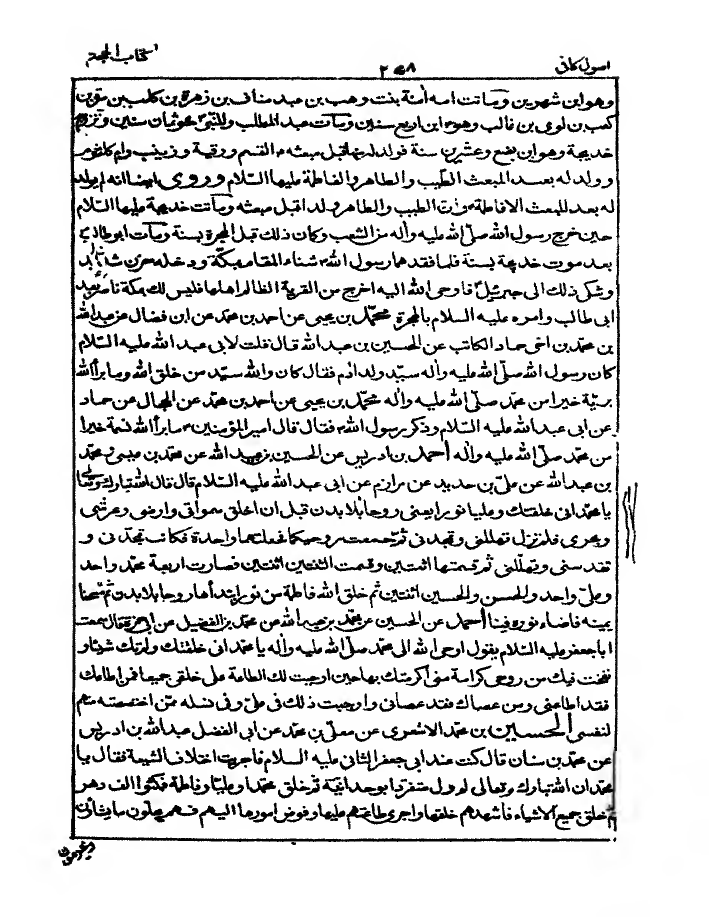 كتاب الحجة
۲۷۸
اصول كافى
وهو ابن شهرين وماتت امه آمنة بنت وهب بن عبد مناف بن زهرة بن كلاب بن مرة بن
كعب بن لوى بن غالب وهو ابن اربع سنين ومات عبد المطلب وللنبى نحو ثمان سنين وتزوج
خديجة وهو ابن بضع وعشرين سنة فولد له منها قبل مبعثه القسم ورقية وزينب وام كلثوم
وولد له بعد المبعث الطيب والطاهر والفاطمة عليها السلام وروى ايضا انه لم يولد
له بعد المبعث الا فاطمة وان الطيب والطاهر ولدا قبل مبعثه وماتت خديجة عليها السلام
حين خرج رسول الله صلى الله عليه وآله من الشعب وكان ذلك قبل الهجرة بسنة ومات ابو طالب
بعد موت خديجة بسنة فلما فقدهما رسول الله شناء المقام بمكة ودخله حزن شديد
وشكى ذلك الى جبرئيل فاوحى الله اليه اخرج من القرية الظالم اهلها فليس لك بمكة ناصر بعد
ابى طالب وامره عليه السلام بالهجرة محمد بن يحيى عن احمد بن محمد عن ابن فضال عن عبد الله
بن محمد بن اخى حماد الكاتب عن الحسين بن عبد الله قال قلت لابى عبد الله عليه السلام
كان رسول الله صلى الله عليه وآله سيد ولد ادم فقال كان والله سيد من خلق الله وما برأ الله
برية خيرا من محمد صلى الله عليه وآله محمد بن يحيى عن احمد بن محمد عن الحجال عن حماد
عن ابى عبد الله عليه السلام وذكر رسول الله فقال قال امير المؤمنين ما برأ الله نسمة خيرا
من محمد صلى الله عليه وآله أحمد بن ادريس عن الحسين بن عبد الله عن محمد بن عيسى ومحمد
بن عبد الله عن على بن حديد عن مرازم عن ابى عبد الله عليه السلام قال قال الله تبارك وتعالى
يا محمد انى خلقتك وعليا نورا يعنى روحا بلا بدن قبل ان اخلق سمواتى وارضى وعرشى
وبحرى فلم تزل تهللنى وتمجدنى ثم جمعت روحيكما فجعلتهما واحدة فكانت تمجدنى و
تقدسنى وتهللنى ثم قسمتها اثنتين وقسمت الثنتين اثنتين فصارت اربعة محمد واحد
وعلى واحد والحسن والحسين اثنتين ثم خلق الله فاطمة من نور ابتدأها روحا بلا بدن ثم مسحنا
بيمينه فاضاء نوره فينا أحمد عن الحسين عن محمد بن عبد الله عن محمد بن الفضيل عن ابى حمزة قال سمعت
ابا جعفر عليه السلام يقول اوحى الله الى محمد صلى الله عليه وآله يا محمد انى خلقتك ولم تك شيئا و
نفخت فيك من روحى كرامة منى اكرمتك بها حين اوجبت لك الطاعة على خلقى جميعا فمن اطاعك
فقد اطاعنى ومن عصاك فقد عصانى واوجبت ذلك فى على وفى نسله ممن اختصصته منهم
لنفسى الحسين بن محمد الاشعرى عن معلى بن محمد عن ابى الفضل عبد الله بن ادريس
عن محمد بن سنان قال كنت عند ابى جعفر الثانى عليه السلام فاجريت اختلاف الشيعة فقال يا
محمد ان الله تبارك وتعالى لم يزل متفردا بوحدانيته ثم خلق محمدا وعليا وفاطمة فمكثوا الف دهر
ثم خلق جميع الاشياء فاشهدهم خلقها واجرى طاعتهم عليها وفوض امورها اليهم فهم يحلون ما يشاؤن
ويحرمون